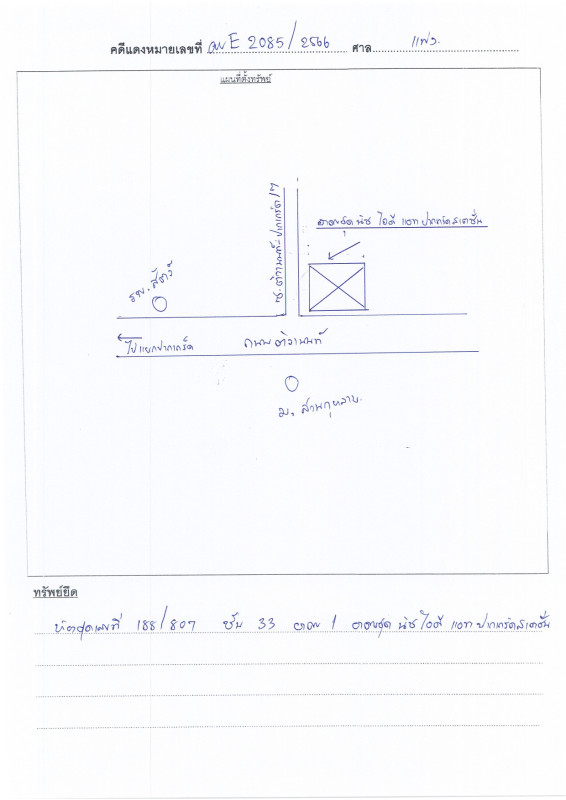 คดีแดงหมายเลขที่ ผบE 2085/2566 ศาล แพ่ง
แผนที่ตั้งทรัพย์
ซ.ติวานนท์-ปากเกร็ด
อาคารชุด นิช ไอดี แอท ปากเกร็ดสเตชั่น
รพ.สัตว์
ไปแยกปากเกร็ด
ถนนติวานนท์
ม. สวนกุหลาบ
ทรัพย์ยึด
ห้องชุดเลขที่ 188/807 ชั้น 33 อาคาร 1 อาคารชุด นิช ไอดี แอท ปากเกร็ดสเตชั่น